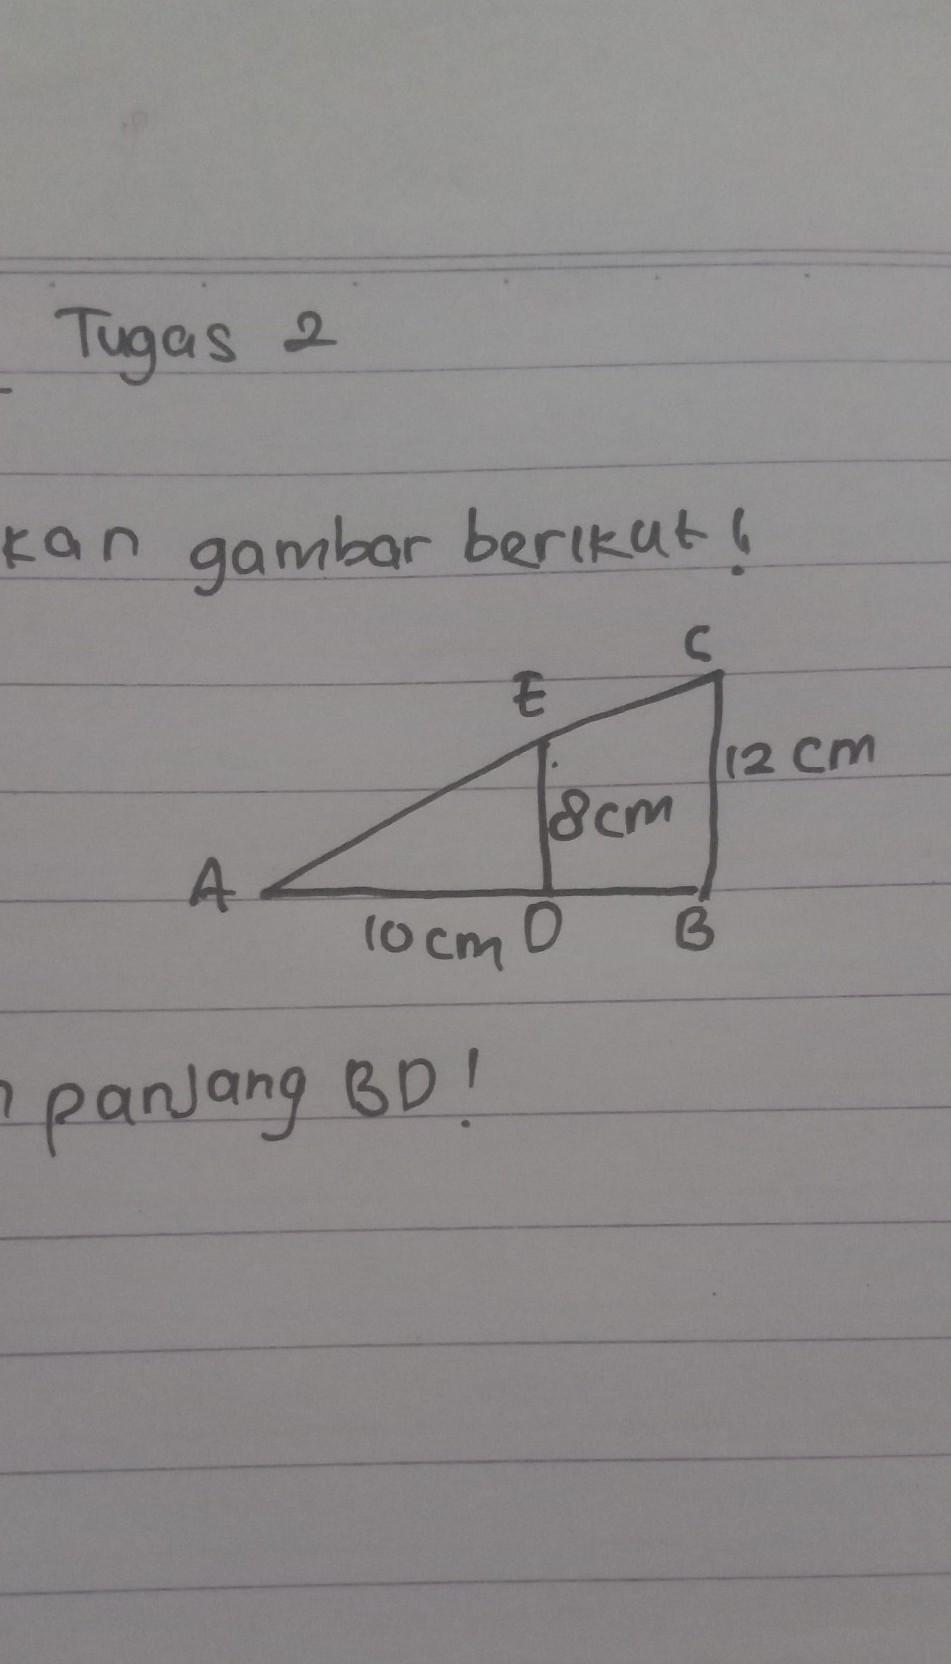 Tugas 2
kan gambar berikut!
C
E
12 cm
8 cm
A
10 cm D B
panjang BD!